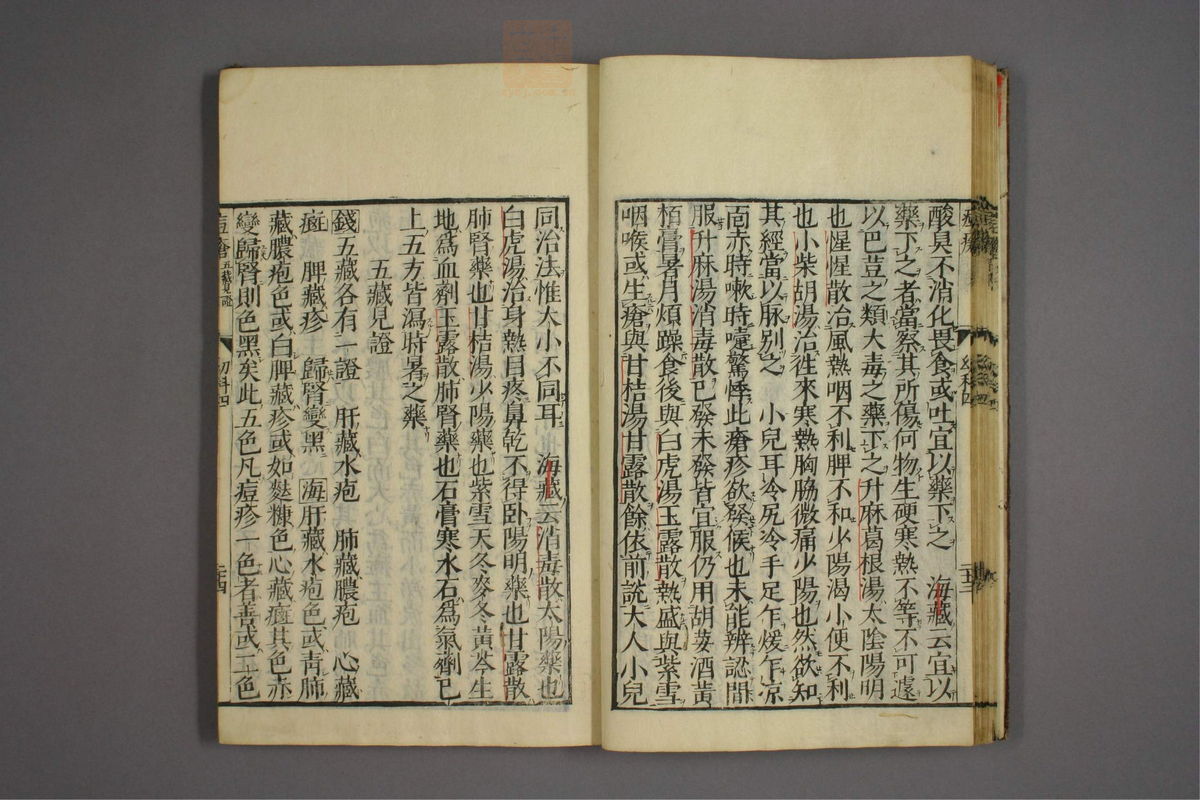 酸臭不消化畏食或吐宜以藥下之　海藏云宜以
藥下之者當察其所傷何物生硬寒熱不等不可遽
以巴荳之類大毒之藥下之升麻葛根湯太陰陽明
也惺惺散治風熱咽不利脾不和少陽渴小便不利
也小柴胡湯治徃來寒熱胸脇微痛少陽也然欲知
其經當以脉别之　小兒耳冷尻冷手足乍煖乍凉
面赤時嗽時嚏驚悸此瘡疹欲發候也未能辨認間
服升麻湯消毒散已發未發皆宜服仍用胡荽酒黄
栢膏暑月煩躁食後與白虎湯玉露散熱盛與紫雪
咽喉或生瘡與甘桔湯甘露散餘依前説大人小兒
同治法惟大小不同耳　海藏云消毒散太陽藥也
白虎湯治身熱目疼鼻乾不得卧陽明藥也甘露散
肺腎藥也甘桔湯少陽藥也紫雪天冬麥冬黃芩生
地爲血劑玉露散肺腎藥也石膏寒水石爲氣劑已
上五方皆瀉時暑之藥
五藏見證
錢五藏各有一證　肝藏水疱　肺藏膿疱　心藏
斑　脾藏疹　歸腎變黑　海肝藏水疱色或青肺
藏膿疱色或白脾藏疹或如麩糠色心藏斑其色赤
變歸腎則色黑矣此五色凡痘疹一色者善或二色
五藏見證
幼科四
二十四